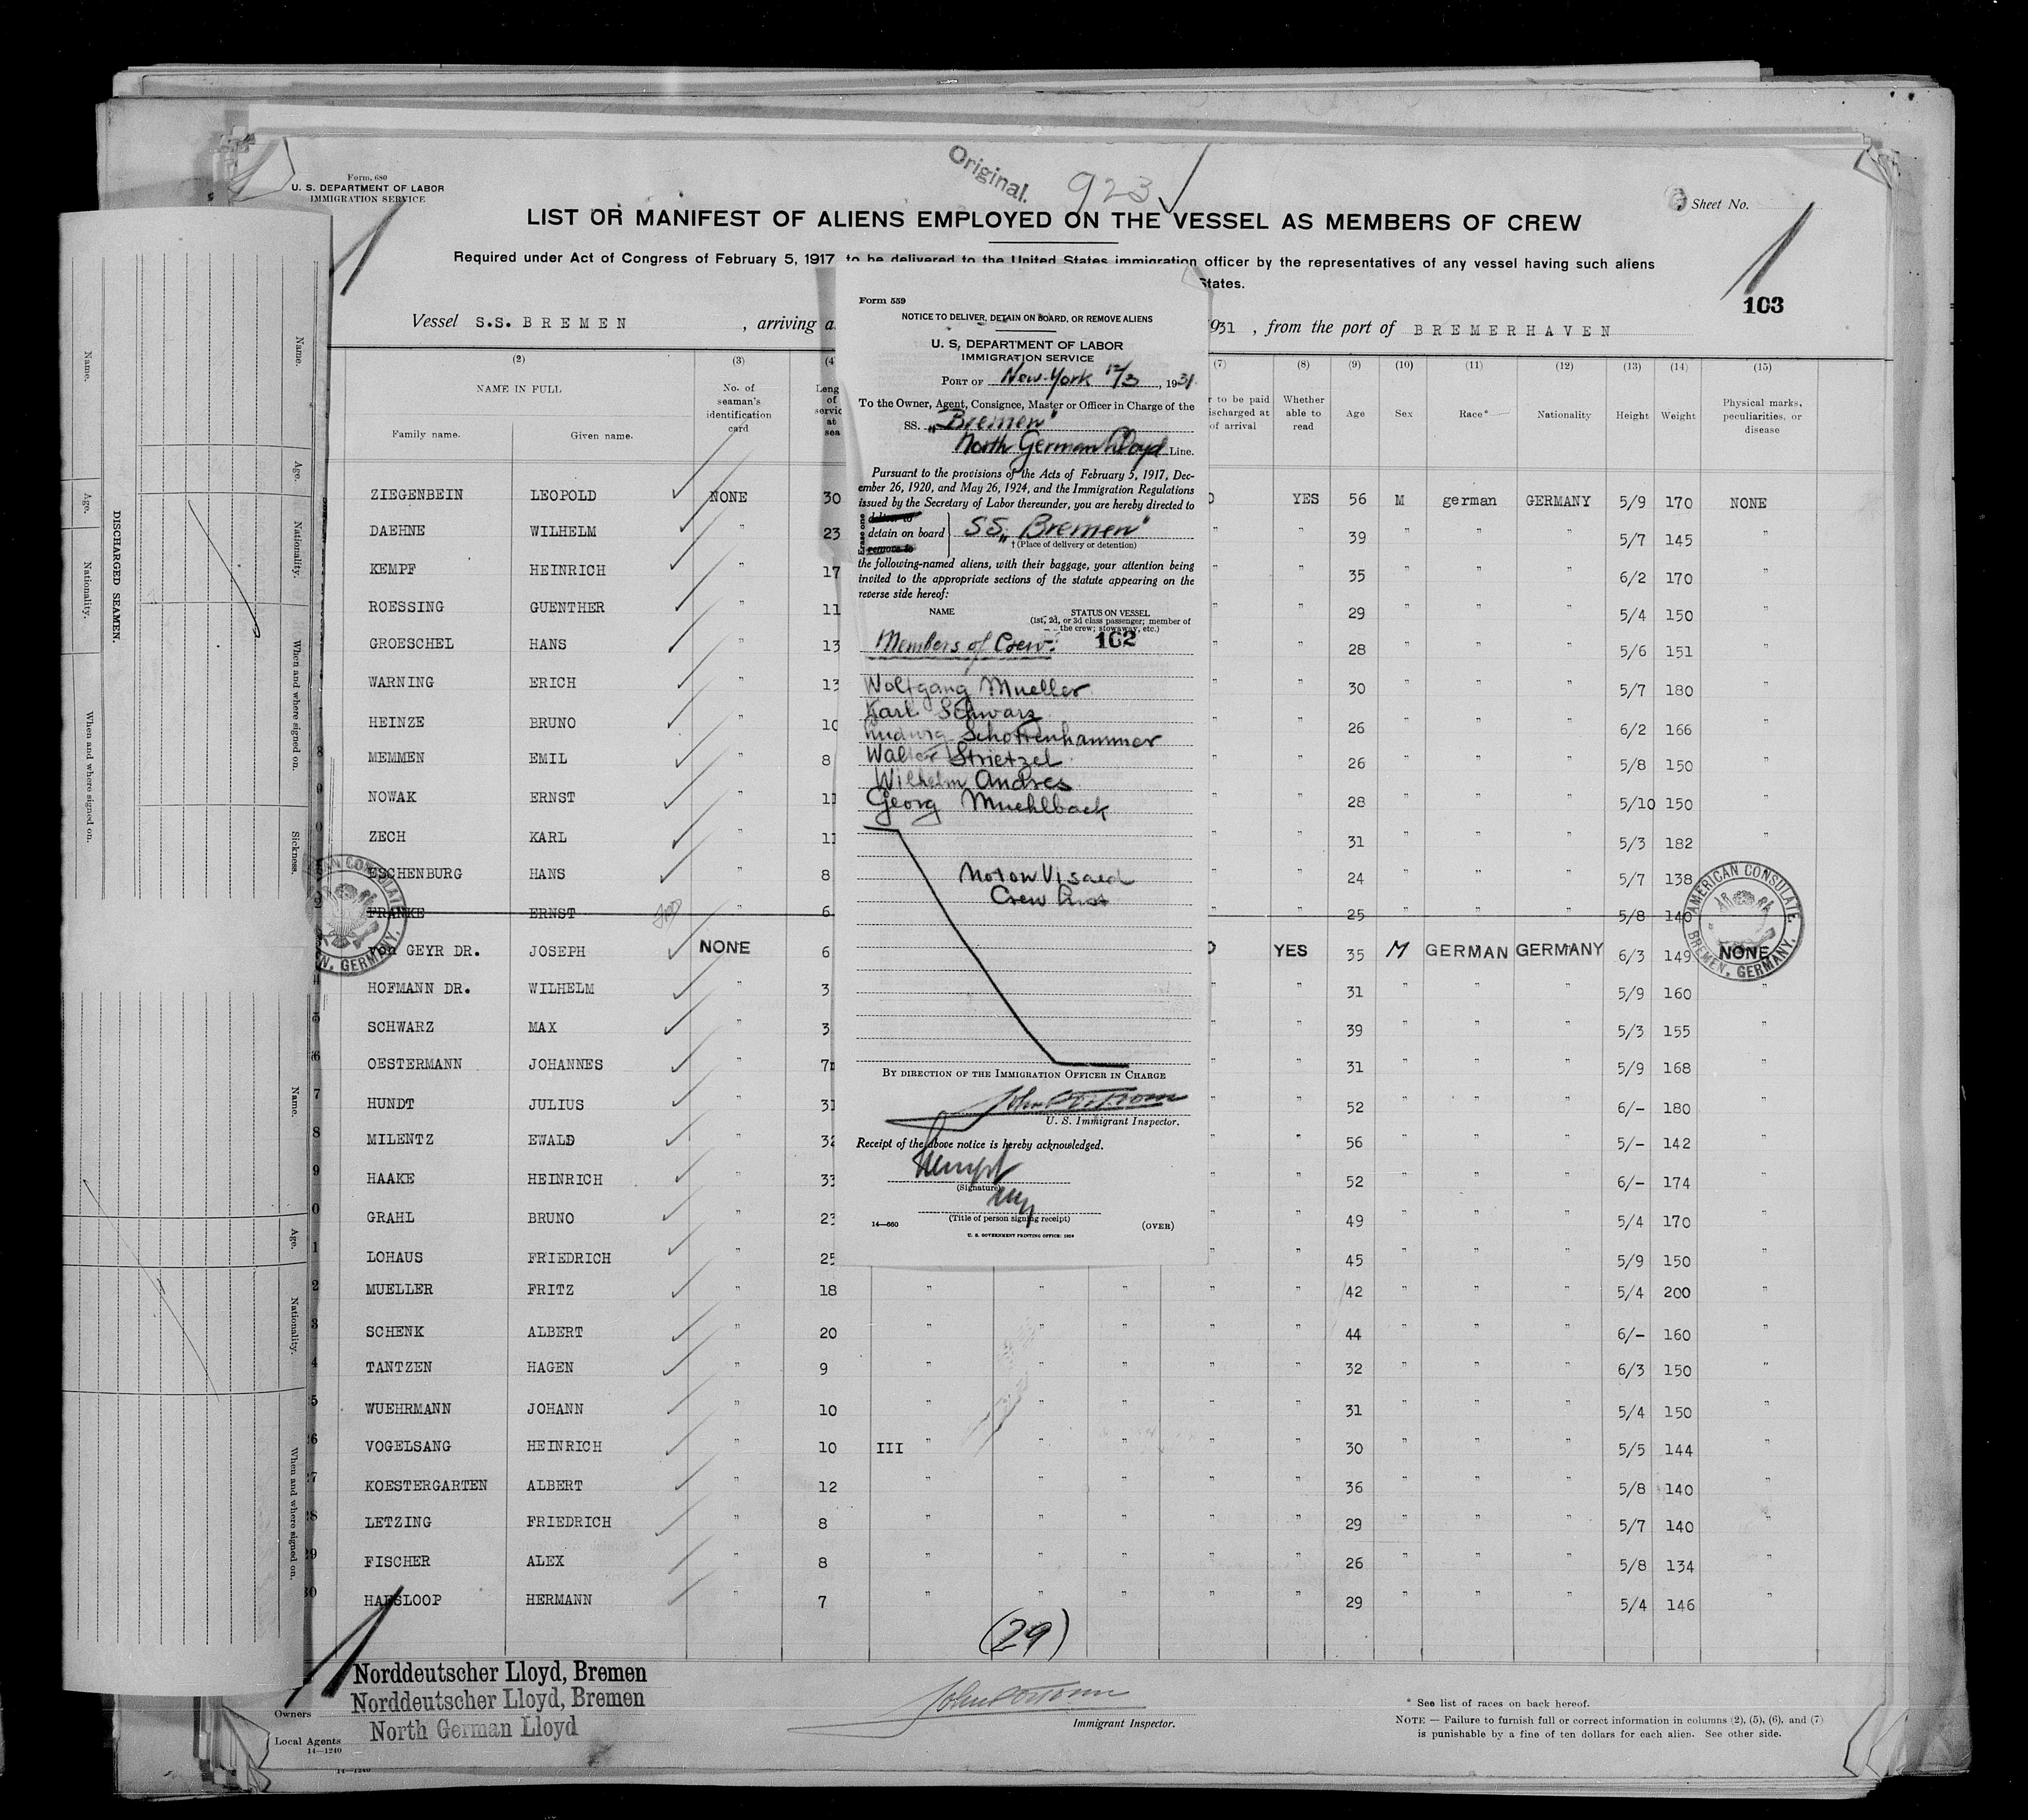 Original.
923
Form. 680
U. S. DEPARTMENT OF LABOR
IMMIGRATION SERVICE
Sheet No.
LIST OR MANIFEST OF ALIENS EMPLOYED ON THE VESSEL AS MEMBERS OF CREW
Required under Act of Congress of February 5, 1917, to be delivered to the United States immigration officer by the representatives of any vessel having such aliens
States.
103
Vessel S.S. BREMEN , arriving a 1931 , from the port of BREMERHAVEN
(2) (3) (4 (7) (8) (9) (10) (11) (12) (13) (14) (15)
NAME IN FULL
Family name. Given name.
No. of seaman's identification card
Leng of servic at sea
r to be paid ischarged at of arrival
Whether able to read
Age Sex Race* Nationality Height Weight
Physical marks, peculiarities, or disease
ZIEGENBEIN LEOPOLD NONE 30 YES 56 M german GERMANY 5/9 170 NONE
DAEHNE WILHELM " 23 " " 39 " " " 5/7 145 "
KEMPF HEINRICH " 17 " " 35 " " " 6/2 170 "
ROESSING GUENTHER " 11 " " 29 " " " 5/4 150 "
GROESCHEL HANS " 13 " " 28 " " " 5/6 151 "
WARNING ERICH " 13 " " 30 " " " 5/7 180 "
HEINZE BRUNO " 10 " " 26 " " " 6/2 166 "
8 MEMMEN EMIL " 8 " " 26 " " " 5/8 150 "
NOWAK ERNST " 11 " " 28 " " " 5/10 150 "
0 ZECH KARL " 11 " " 31 " " " 5/3 182 "
ESCHENBURG HANS " 8 " " 24 " " " 5/7 138 "
FRANKE ERNST " 6 " " 25 " " " 5/8 140
von GEYR DR. JOSEPH NONE 6 YES 35 M GERMAN GERMANY 6/3 149 NONE
HOFMANN DR. WILHELM " 3 " " 31 " " " 5/9 160 "
5 SCHWARZ MAX " 3 " " 39 " " " 5/3 155 "
6 OESTERMANN JOHANNES " 7 " " 31 " " " 5/9 168 "
7 HUNDT JULIUS " 31 " " 52 " " " 6/- 180 "
8 MILENTZ EWALD " 32 " " 56 " " " 5/- 142 "
9 HAAKE HEINRICH " 33 " " 52 " " " 6/- 174 "
0 GRAHL BRUNO " 23 " " 49 " " " 5/4 170 "
1 LOHAUS FRIEDRICH " 25 " " 45 " " " 5/9 150 "
2 MUELLER FRITZ " 18 " " " " " 42 " " " 5/4 200 "
3 SCHENK ALBERT " 20 " " " " " 44 " " " 6/- 160 "
4 TANTZEN HAGEN " 9 " " " " " 32 " " " 6/3 150 "
5 WUEHRMANN JOHANN " 10 " " " " " 31 " " " 5/4 150 "
6 VOGELSANG HEINRICH " 10 III " " " " " 30 " " " 5/5 144 "
7 KOESTERGARTEN ALBERT " 12 " " " " " 36 " " " 5/8 140 "
8 LETZING FRIEDRICH " 8 " " " " " 29 " " " 5/7 140 "
9 FISCHER ALEX " 8 " " " " " 26 " " " 5/8 134 "
30 HARSLOOP HERMANN " 7 " " " " " 29 " " " 5/4 146 "
(29)
AMERICAN CONSULATE.
BREMEN, GERMANY.
Form 559
NOTICE TO DELIVER, DETAIN ON BOARD, OR REMOVE ALIENS
U. S. DEPARTMENT OF LABOR
IMMIGRATION SERVICE
PORT OF New-York 12/3, 1931.
To the Owner, Agent, Consignee, Master or Officer in Charge of the
SS. „Bremen"
North German Lloyd Line.
Pursuant to the provisions of the Acts of February 5, 1917, Dec-
ember 26, 1920, and May 26, 1924, and the Immigration Regulations
issued by the Secretary of Labor thereunder, you are hereby directed to
Erase one
deliver to
detain on board SS „Bremen"
remove to
† (Place of delivery or detention)
the following-named aliens, with their baggage, your attention being
invited to the appropriate sections of the statute appearing on the
reverse side hereof:
NAME STATUS ON VESSEL
(1st, 2d, or 3d class passenger; member of
the crew; stowaway, etc.)
Members of Crew: 102
Wolfgang Mueller
Karl Schwarz
Ludwig Schottenhammer
Walter Strietzel
Wilhelm Andres
Georg Muehlback
Not on Visaed
Crew List
BY DIRECTION OF THE IMMIGRATION OFFICER IN CHARGE
U. S. Immigrant Inspector.
Receipt of the above notice is hereby acknowledged.
(Signature)
(Title of person signing receipt)
14—660 (OVER)
U. S. GOVERNMENT PRINTING OFFICE: 1929
DISCHARGED SEAMEN.
Name.
Age.
Nationality.
When and where signed on.
Name.
Age.
Nationality.
When and where signed on.
Sickness.
Name.
Age.
Nationality.
When and where signed on.
Norddeutscher Lloyd, Bremen
Owners Norddeutscher Lloyd, Bremen
Local Agents North German Lloyd
14—1240
14—1240
Immigrant Inspector.
* See list of races on back hereof.
NOTE — Failure to furnish full or correct information in columns (2), (5), (6), and (7)
is punishable by a fine of ten dollars for each alien. See other side.